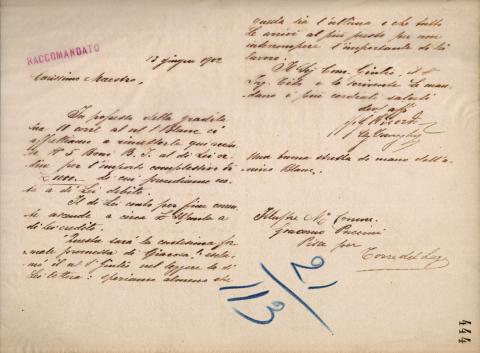 RACCOMANDATO
13 giugno 1902
Carissimo Maestro,
In risposta della gradita
Sua 11 corr. al
affrettiamo a rimetterle qui
di Lei or
dine per l'importo complessivo di
di cui prendiamo no
ta a di Lei debito.
Il di Lei conto per fine
ascende a circa
di Lei credito.
Questa sarà la centesima for
male promessa di Giacosa,
mò il Giulio nel leggere la di
Lei lettera: speriamo almeno che
questa sia l'ultima e che tutto
Le arrivi al più presto per non
interrompere l'importante di Lei
lavoro.
Il Sig. Com. Giulio, il
Sig. Tito e lo scrivente Le man
dano i più cordiali saluti
G. Ricordi
Una buona stretta di mano dall'a
mico Blanc.
Illustre Mo. Comm.
Giacomo Puccini
Pisa per
Torre del Lago
21/
113
444